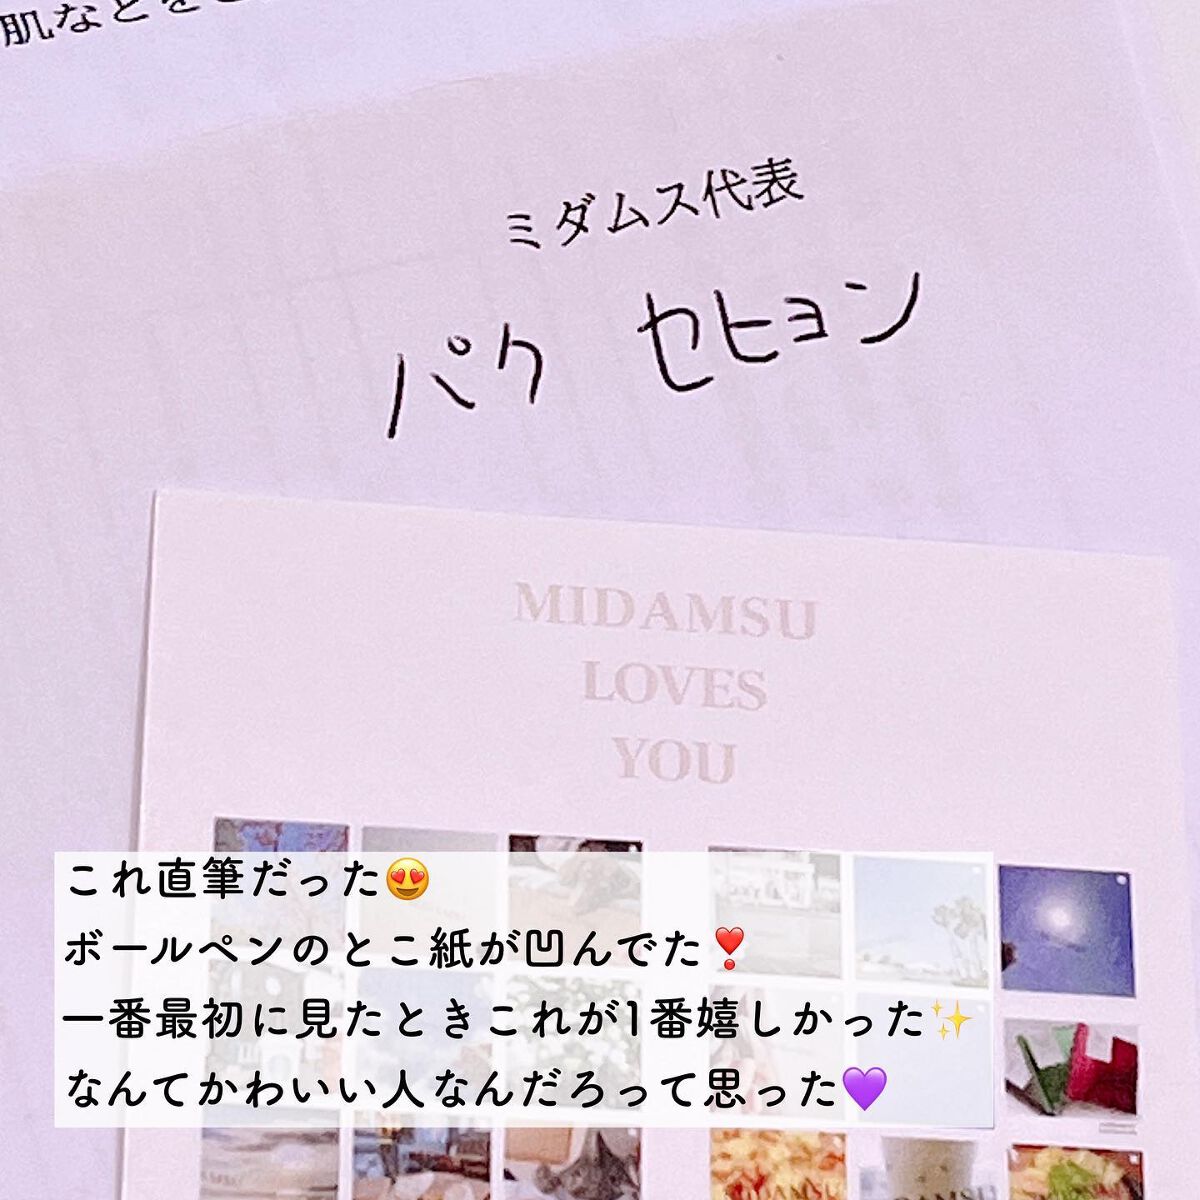 肌などをと
ミダムス代表
パク セヒョン
MIDAMSU
LOVES
YOU
これ直筆だった😍
ボールペンのとこ紙が凹んでた❣️
一番最初に見たときこれが1番嬉しかった✨
なんてかわいい人なんだろって思った💜
MIDAMSU